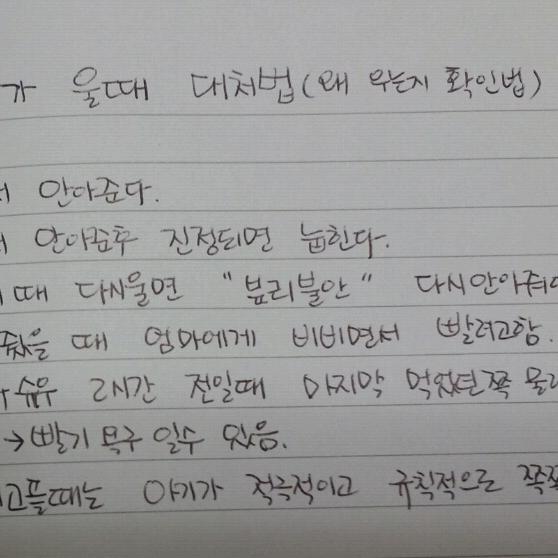 가 울때 대처법(왜 우는지 확인법)
서 안아준다.
서 안아준후 진정되면 눕힌다.
때 다시울면 "분리불안" 다시안아줘
줬을 때 엄마에게 비비면서 빨려고함.
수유 2시간 전일때 마지막 먹었던쪽 물
→빨기 욕구 일수 있음.
고플때는 아기가 적극적이고 규칙적으로 쪽쪽